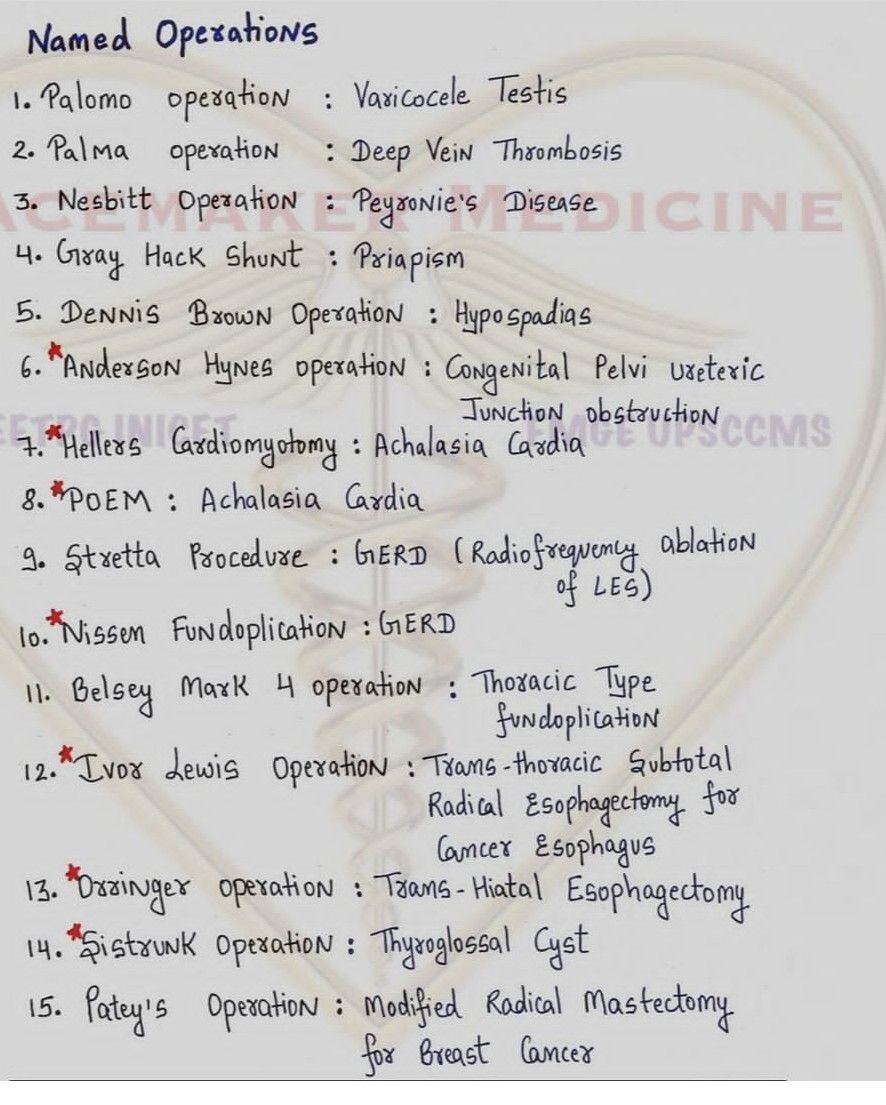 Named Operations
1. Palomo operation : Varicocele Testis
2. Palma operation : Deep Vein Thrombosis
ACEMAKER MEDICINE
3. Nesbitt Operation : Peyronie's Disease
4. Gray Hack Shunt : Priapism
5. Dennis Brown Operation : Hypospadias
6. *Anderson Hynes operation : Congenital Pelvi ureteric
Junction obstruction
INICET FMGE UPSCCMS
7. *Hellers Cardiomyotomy : Achalasia Cardia
8. *POEM : Achalasia Cardia
9. Stretta Procedure : GERD (Radiofrequency ablation
of LES)
10. *Nissen Fundoplication : GERD
11. Belsey Mark 4 operation : Thoracic Type
fundoplication
12. *Ivor Lewis Operation : Trans-thoracic Subtotal
Radical Esophagectomy for
Cancer Esophagus
13. *Orringer operation : Trans-Hiatal Esophagectomy
14. *Sistrunk Operation : Thyroglossal Cyst
15. Patey's Operation : Modified Radical Mastectomy
for Breast Cancer